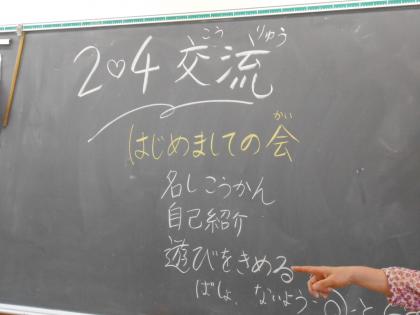 2♡4 交流
こう りゅう
はじめましての会
かい
名しこうかん
自己紹介
遊びをきめる
ばしょ、ないよう